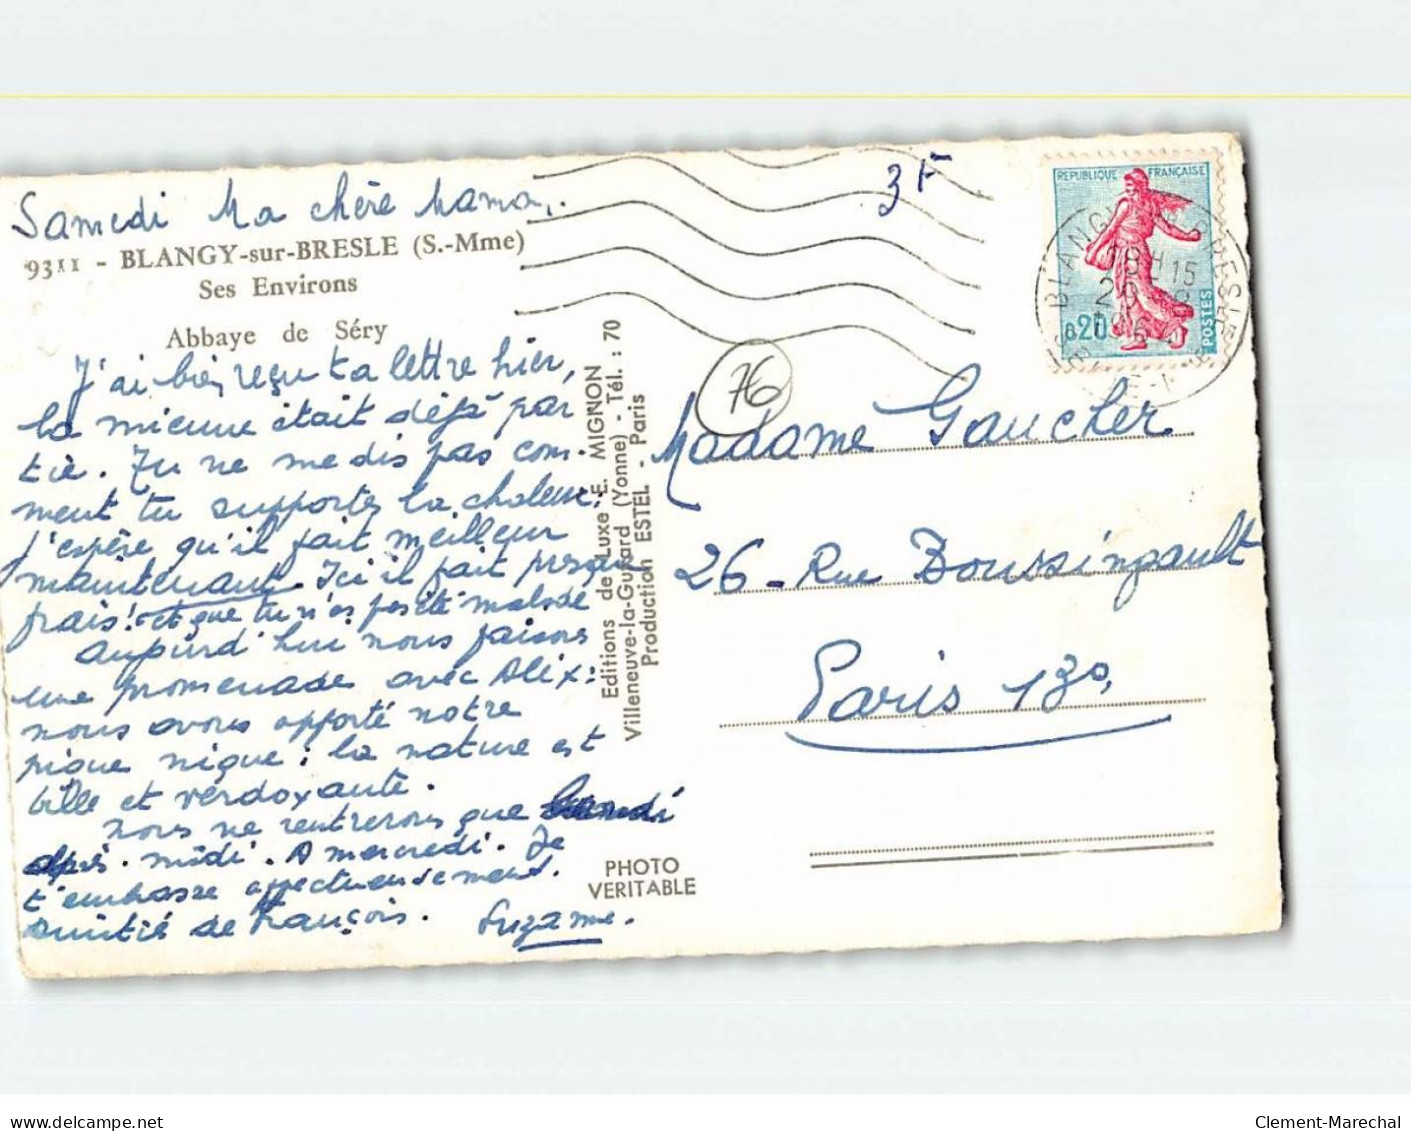 Samedi Ma chère Maman,
9311 - BLANGY-sur-BRESLE (S.-Mme)
Ses Environs
Abbaye de Séry
J'ai bien reçu ta lettre hier,
la mienne était déjà par
tie. Tu ne me dis pas com-
ment tu supportes la chaleur.
j'espère qu'il fait meilleur
maintenant Ici il fait presque
frais! et que tu n'es pas été malade
aujourd'hui nous faisons
une promenade avec Alix:
nous avons apporté notre
pique nique; la nature est
belle et verdoyante.
Nous ne rentrerons que
après-midi. A mercredi. Je
t'embrasse affectueusement.
amitiés de François. Suzanne.
Editions de Luxe E. MIGNON
Villeneuve-la-Guyard (Yonne) - Tél. : 70
Production ESTEL - Paris
PHOTO
VERITABLE
3F
76
REPUBLIQUE FRANÇAISE
0,20
POSTES
18H15
Madame Gaucher
26 - Rue Boussingault
Paris 13e
www.delcampe.net
Clement-Marechal